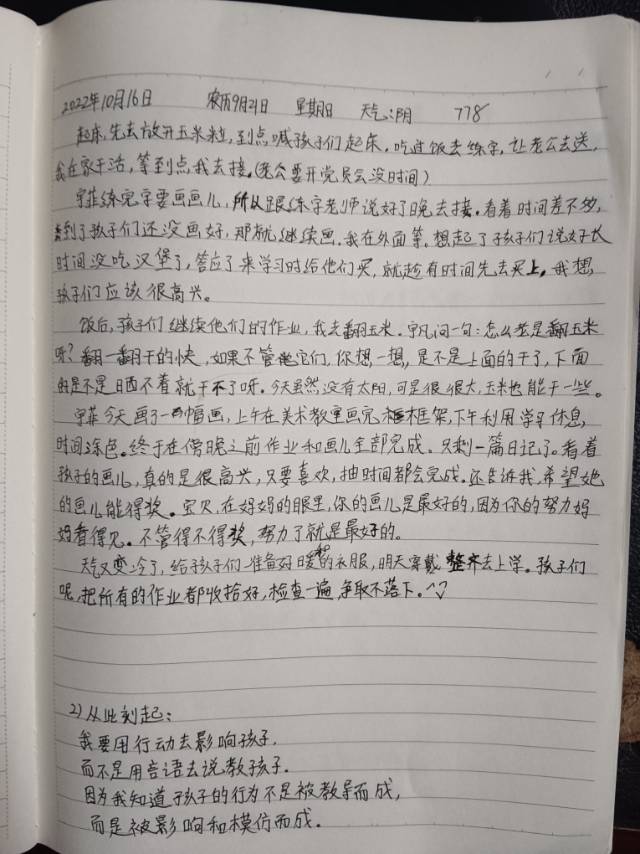 2022年10月16日 农历9月21日 星期日 天气:阴 778
起床,先去放开玉米粒,到点喊孩子们起床,吃过饭去练字,让老公去送,
我在家干活,等到点我去接。(老公要开党员会没时间)
宇菲练完字要画画儿,所以跟练字老师说好了晚去接。看着时间差不多,
到了孩子们还没画好,那就继续画。我在外面等。想起了孩子们说好长
时间没吃汉堡了,答应了来学习时给他们买,就趁有时间先去买上,我想,
孩子们应该很高兴。
饭后,孩子们继续他们的作业,我去翻玉米。宇凡问一句:怎么老是翻玉米
呀?翻一翻干的快,如果不管它们,你想一想,是不是上面的干了,下面
的是不是晒不着就干不了呀。今天虽然没有太阳,可是很很大,玉米也能干一些。
宇菲今天画了一幅画,上午在美术教室画完框框架,下午利用学习休息,
时间涂色。终于在傍晚之前作业和画儿全部完成。只剩一篇日记了。看着
孩子的画儿,真的是很高兴,只要喜欢,抽时间都会完成。还告诉我,希望她
的画儿能得奖。宝贝,在妈妈的眼里,你的画儿是最好的,因为你的努力妈
妈看得见。不管得不得奖,努力了就是最好的。
天气又变冷了,给孩子们准备好暖和的衣服,明天穿戴整齐去上学。孩子们
呢,把所有的作业都收拾好,检查一遍,争取不落下。^^
2)从此刻起:
我要用行动去影响孩子.
而不是用言语去说教孩子.
因为我知道孩子的行为不是被教导而成,
而是被影响和模仿而成.